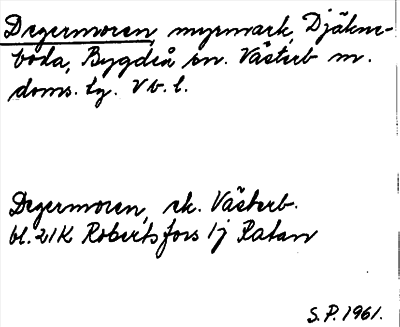 Degermoren, myrmark, Djäkne-
boda, Bygdeå sn. Västerb m.
doms. tg. Vb. l.
Degermoren, ek. Västerb.
bl. 21K Robertsfors 1j Ratan
S.P. 1961.